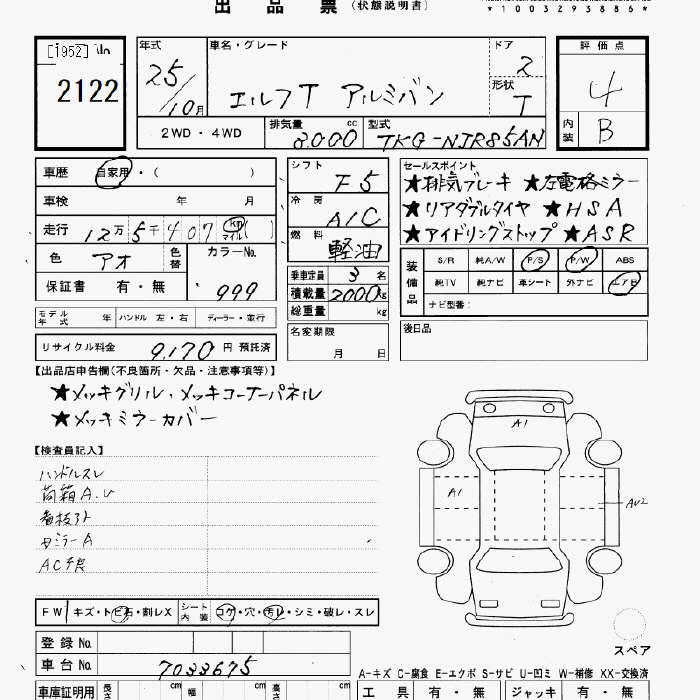 出品票 (状態説明書)
*1003293886*
[1952] No
2122
年式 25/10月
車名・グレード エルフT アルミバン
ドア 2
形状 T
評価点 4
内装 B
2WD・4WD
排気量 8000 cc
型式 TKG-NJR85AN
車歴 自家用・( )
シフト F5
セールスポイント
★排気ブレーキ ★左電格ミラー
★リアダブルタイヤ ★HSA
★アイドリングストップ ★ASR
車検 年 月
冷房 A/C
走行 12万5千407 km マイル( )
燃料 軽油
色 アオ 色替
カラーNo. 999
保証書 有・無
乗車定員 3名
積載量 2000kg
総重量 kg
装備品 S/R 純A/W P/S P/W ABS
純TV 純ナビ 車シート 外ナビ エアB
ナビ型番:
モデル年式 年 ハンドル 左・右 ディーラー・並行
名変期限 月 日
後日品
リサイクル料金 9,170円 預託済
【出品店申告欄(不良箇所・欠品・注意事項等)】
★メッキグリル、メッキコーナーパネル
★メッキミラーカバー
【検査員記入】
ハンドルスレ
荷箱A.U
看板跡
ミラーA
AC不良
A1
A1
AU2
スペア
FW キズ・トビ石・割レX
シート内装 コゲ・穴・汚レ・シミ・破レ・スレ
登録No.
車台No. 7033675
A-キズ C-腐食 E-エクボ S-サビ U-凹ミ W-補修 XX-交換済
車庫証明用 長さ cm 幅 cm 高さ cm
工具 有・無 ジャッキ 有・無